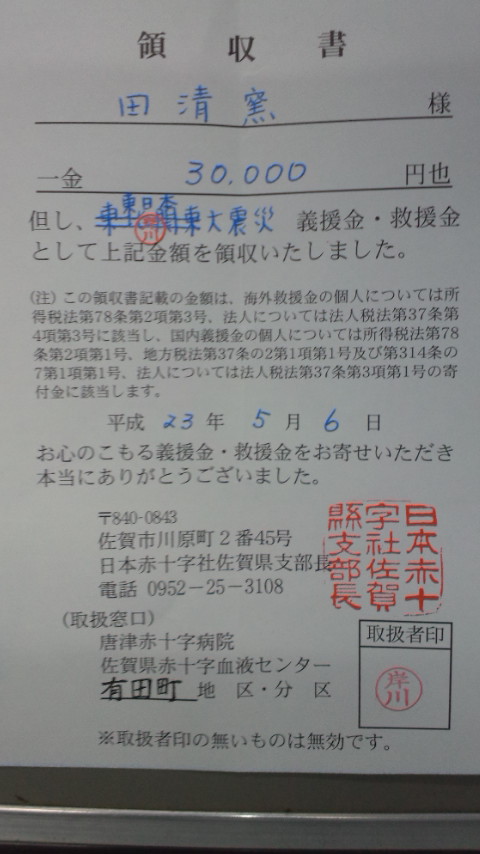 領収書
田清窯 様
一金 30,000 円也
但し、東日本大震災 義援金・救援金
として上記金額を領収いたしました。
(注) この領収書記載の金額は、海外救援金の個人については所
得税法第78条第2項第3号、法人については法人税法第37条第
4項第3号に該当し、国内義援金の個人については所得税法第78
条第2項第1号、地方税法第37条の2第1項第1号及び第314条の
7第1項第1号、法人については法人税法第37条第3項第1号の寄
付金に該当します。
平成 23 年 5 月 6 日
お心のこもる義援金・救援金をお寄せいただき
本当にありがとうございました。
〒840-0843
佐賀市川原町2番45号
日本赤十字社佐賀県支部長
電話 0952-25-3108
日本赤十
字社佐賀
縣支部長
(取扱窓口)
唐津赤十字病院
佐賀県赤十字血液センター
有田町 地 区・分 区
取扱者印
岸川
※取扱者印の無いものは無効です。